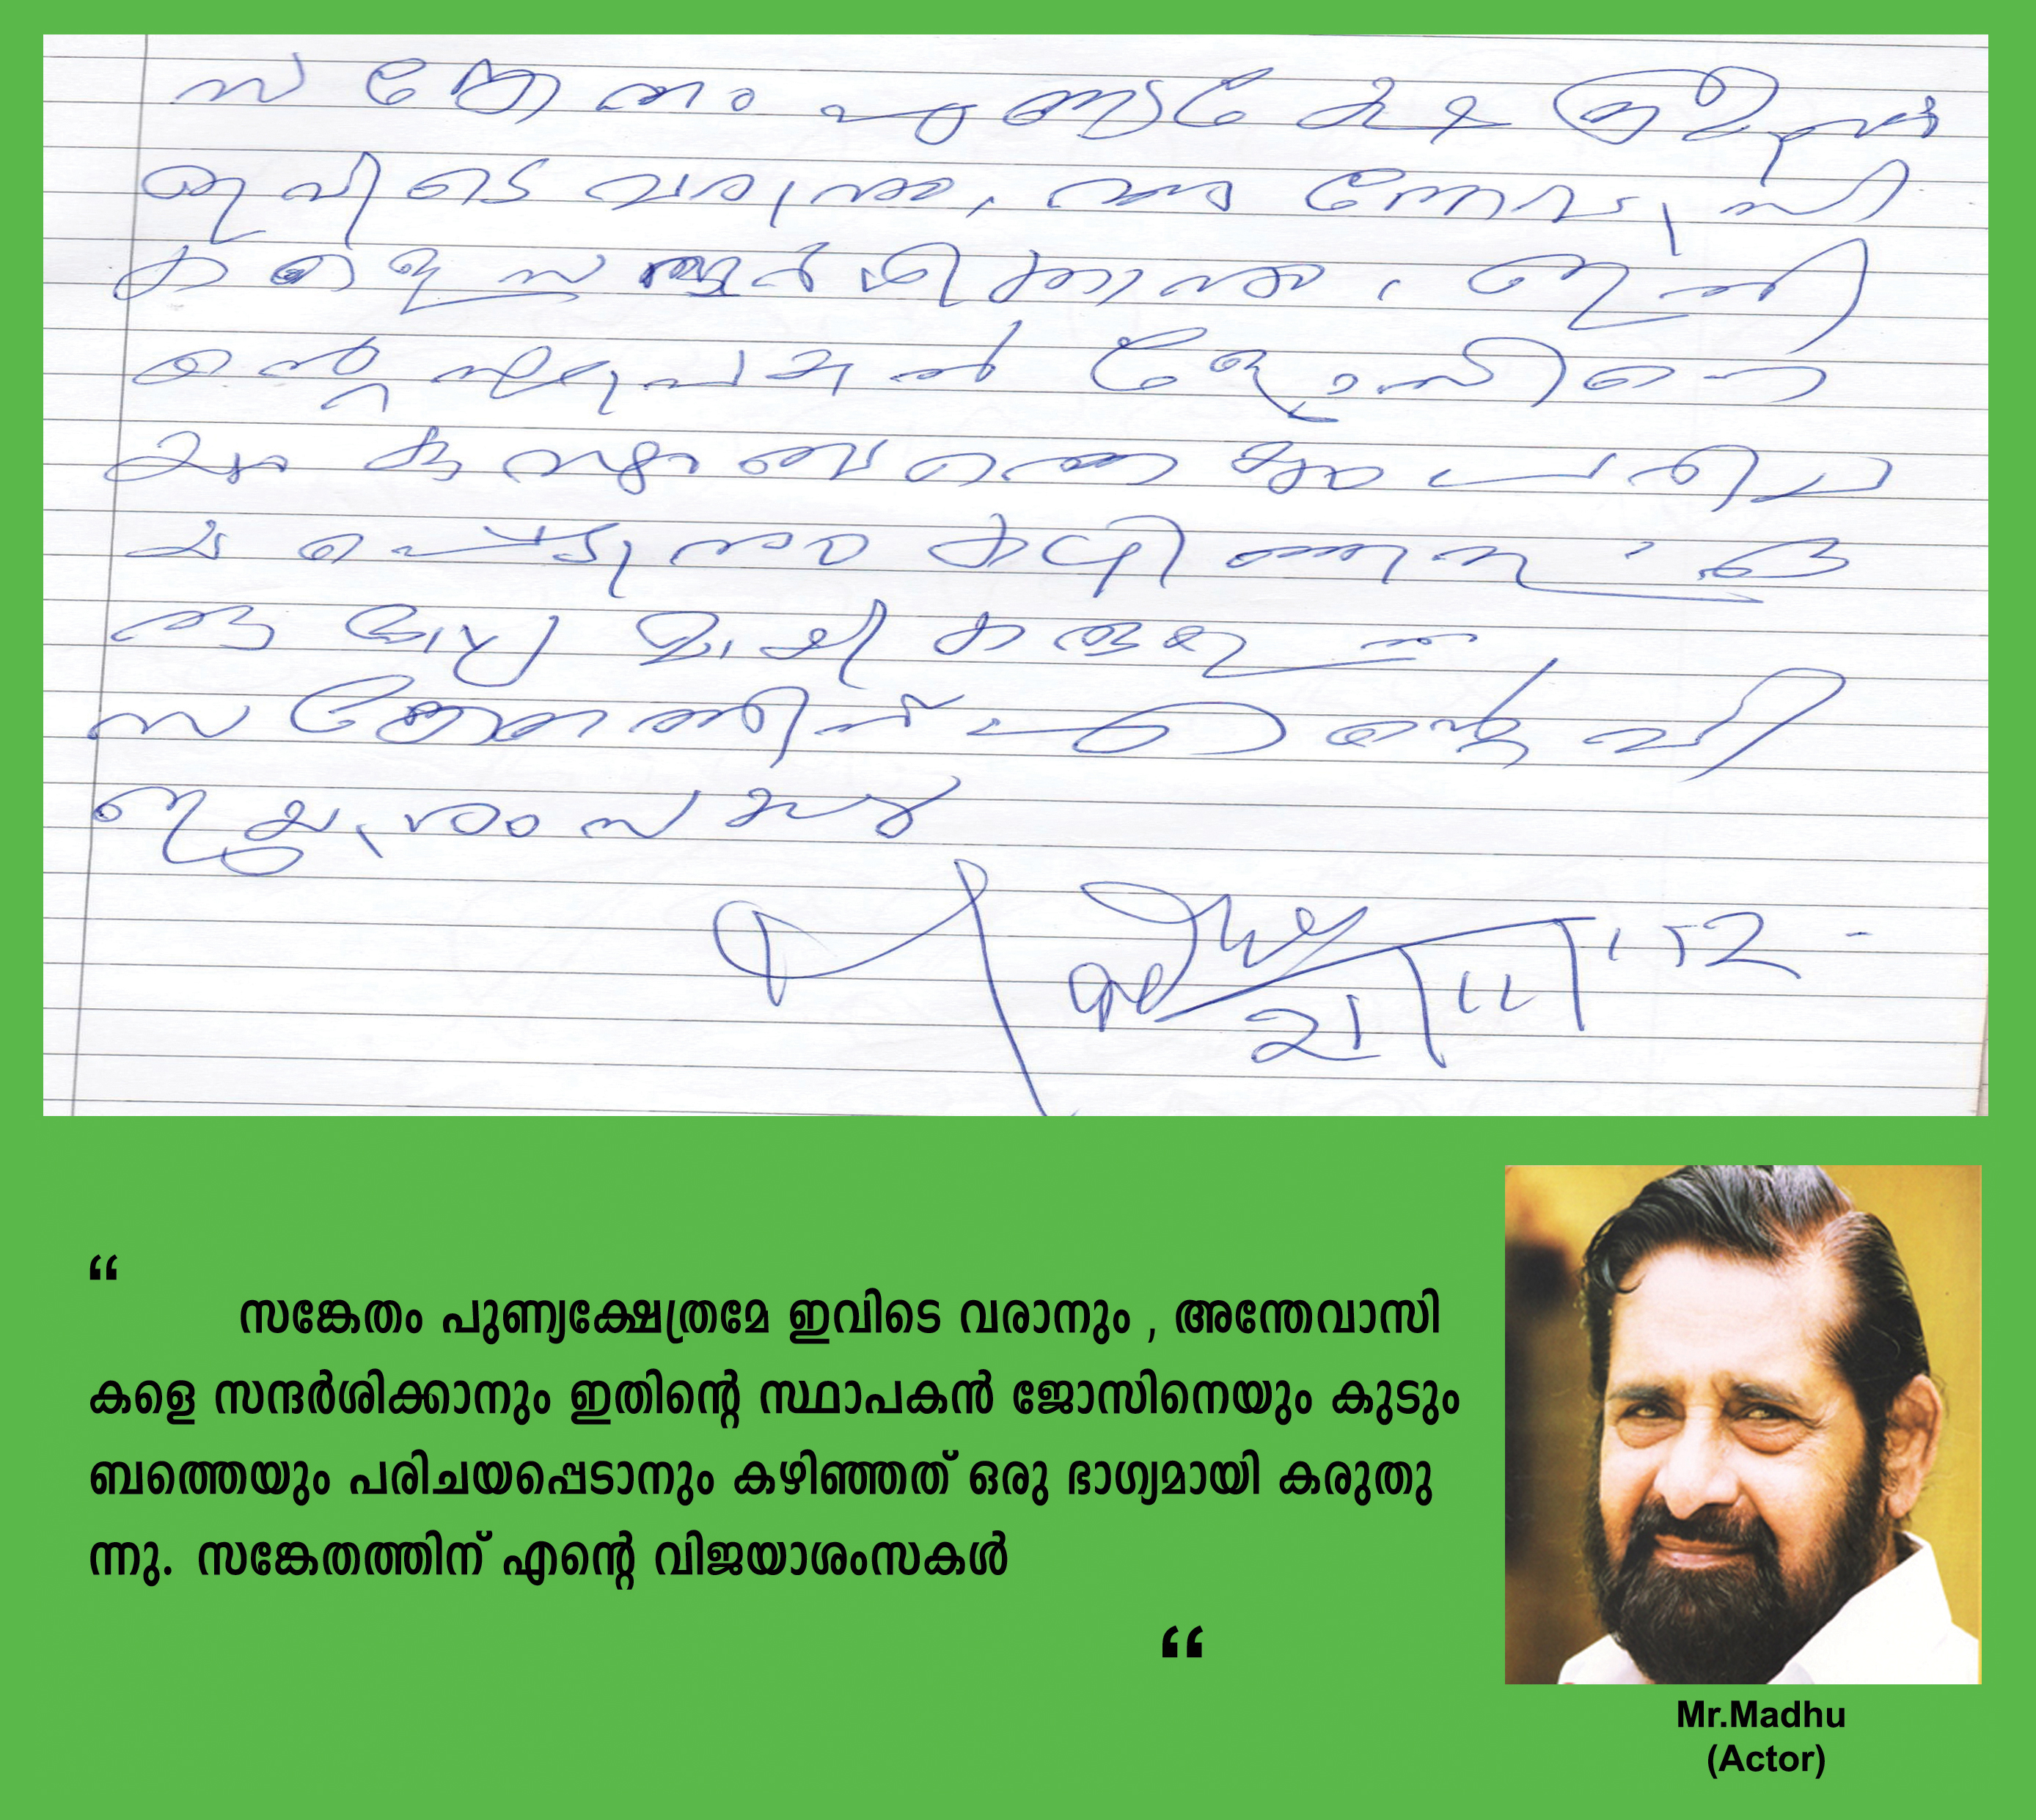 സങ്കേതം പുണ്യക്ഷേത്രമേ
ഇവിടെ വരാനും, അന്തേവാസി
കളെ സന്ദർശിക്കാനും, ഇതി
ന്റെ സ്ഥാപകൻ ജോസിനെ
യും കുടുംബത്തെയും പരിച
യപ്പെടാനും കഴിഞ്ഞത് ഒ
രു ഭാഗ്യമായി കരുതുന്നു
സങ്കേതത്തിന് എന്റെ വി
ജയാശംസകൾ
“
സങ്കേതം പുണ്യക്ഷേത്രമേ ഇവിടെ വരാനും , അന്തേവാസി
കളെ സന്ദർശിക്കാനും ഇതിന്റെ സ്ഥാപകൻ ജോസിനെയും കുടും
ബത്തെയും പരിചയപ്പെടാനും കഴിഞ്ഞത് ഒരു ഭാഗ്യമായി കരുതു
ന്നു. സങ്കേതത്തിന് എന്റെ വിജയാശംസകൾ
“
Mr.Madhu
(Actor)